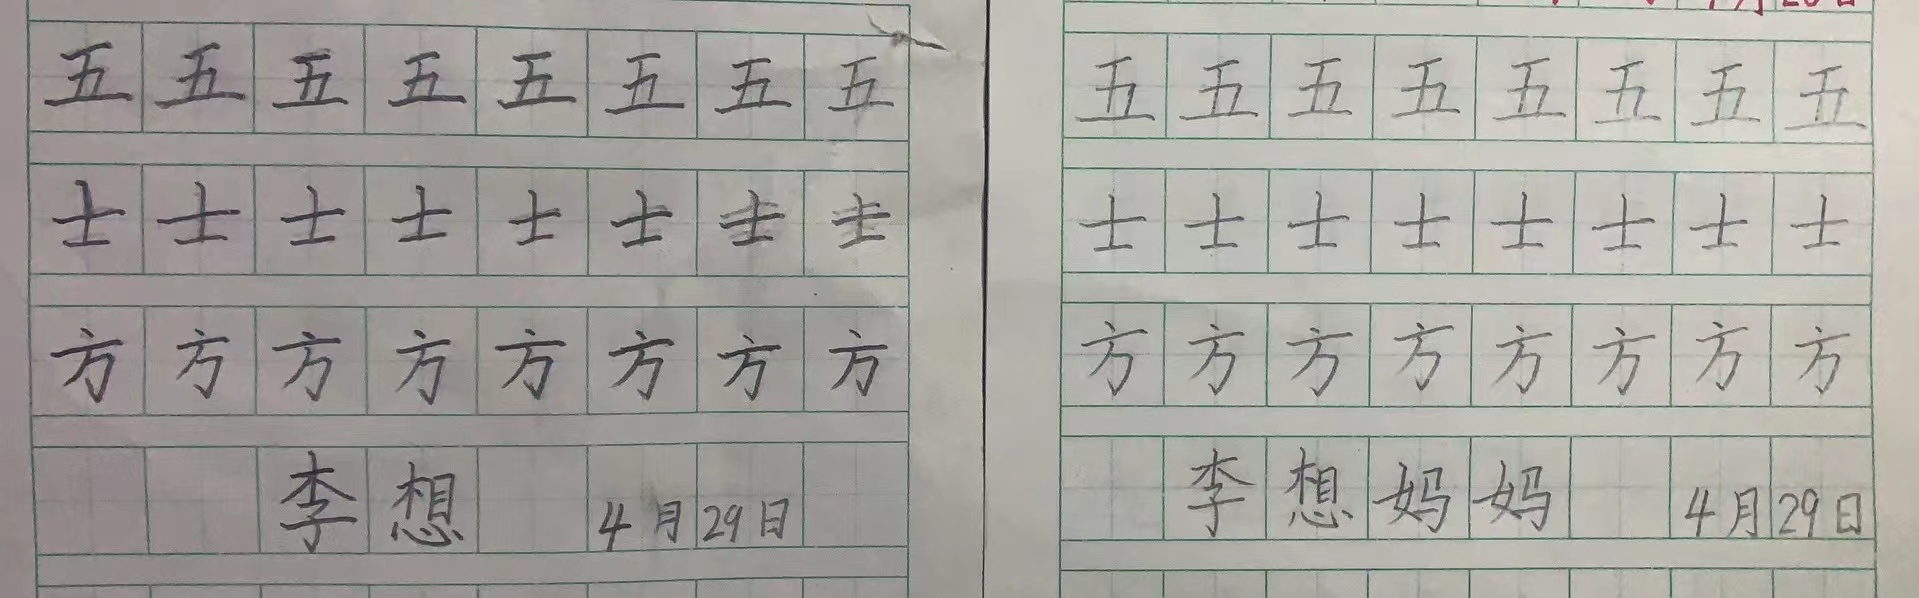 五五五五五五五五
士士士士士士士士
方方方方方方方方
李想 4月29日
五五五五五五五五
士士士士士士士士
方方方方方方方方
李想妈妈 4月29日